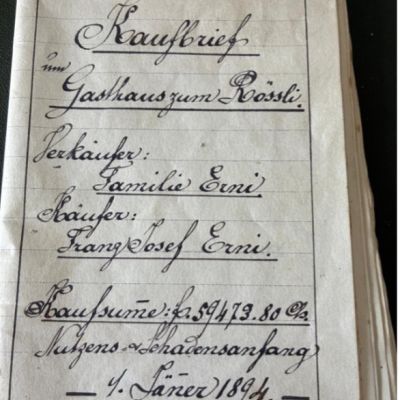 Kaufbrief
um
Gasthaus zum Rössli.
Verkäufer:
Familie Erni.
Käufer:
Franz Josef Erni.
Kaufsum̅e: fr. 59473.80 Cts.
Nutzens- & Schadensanfang
— 1. Jänner 1894. —